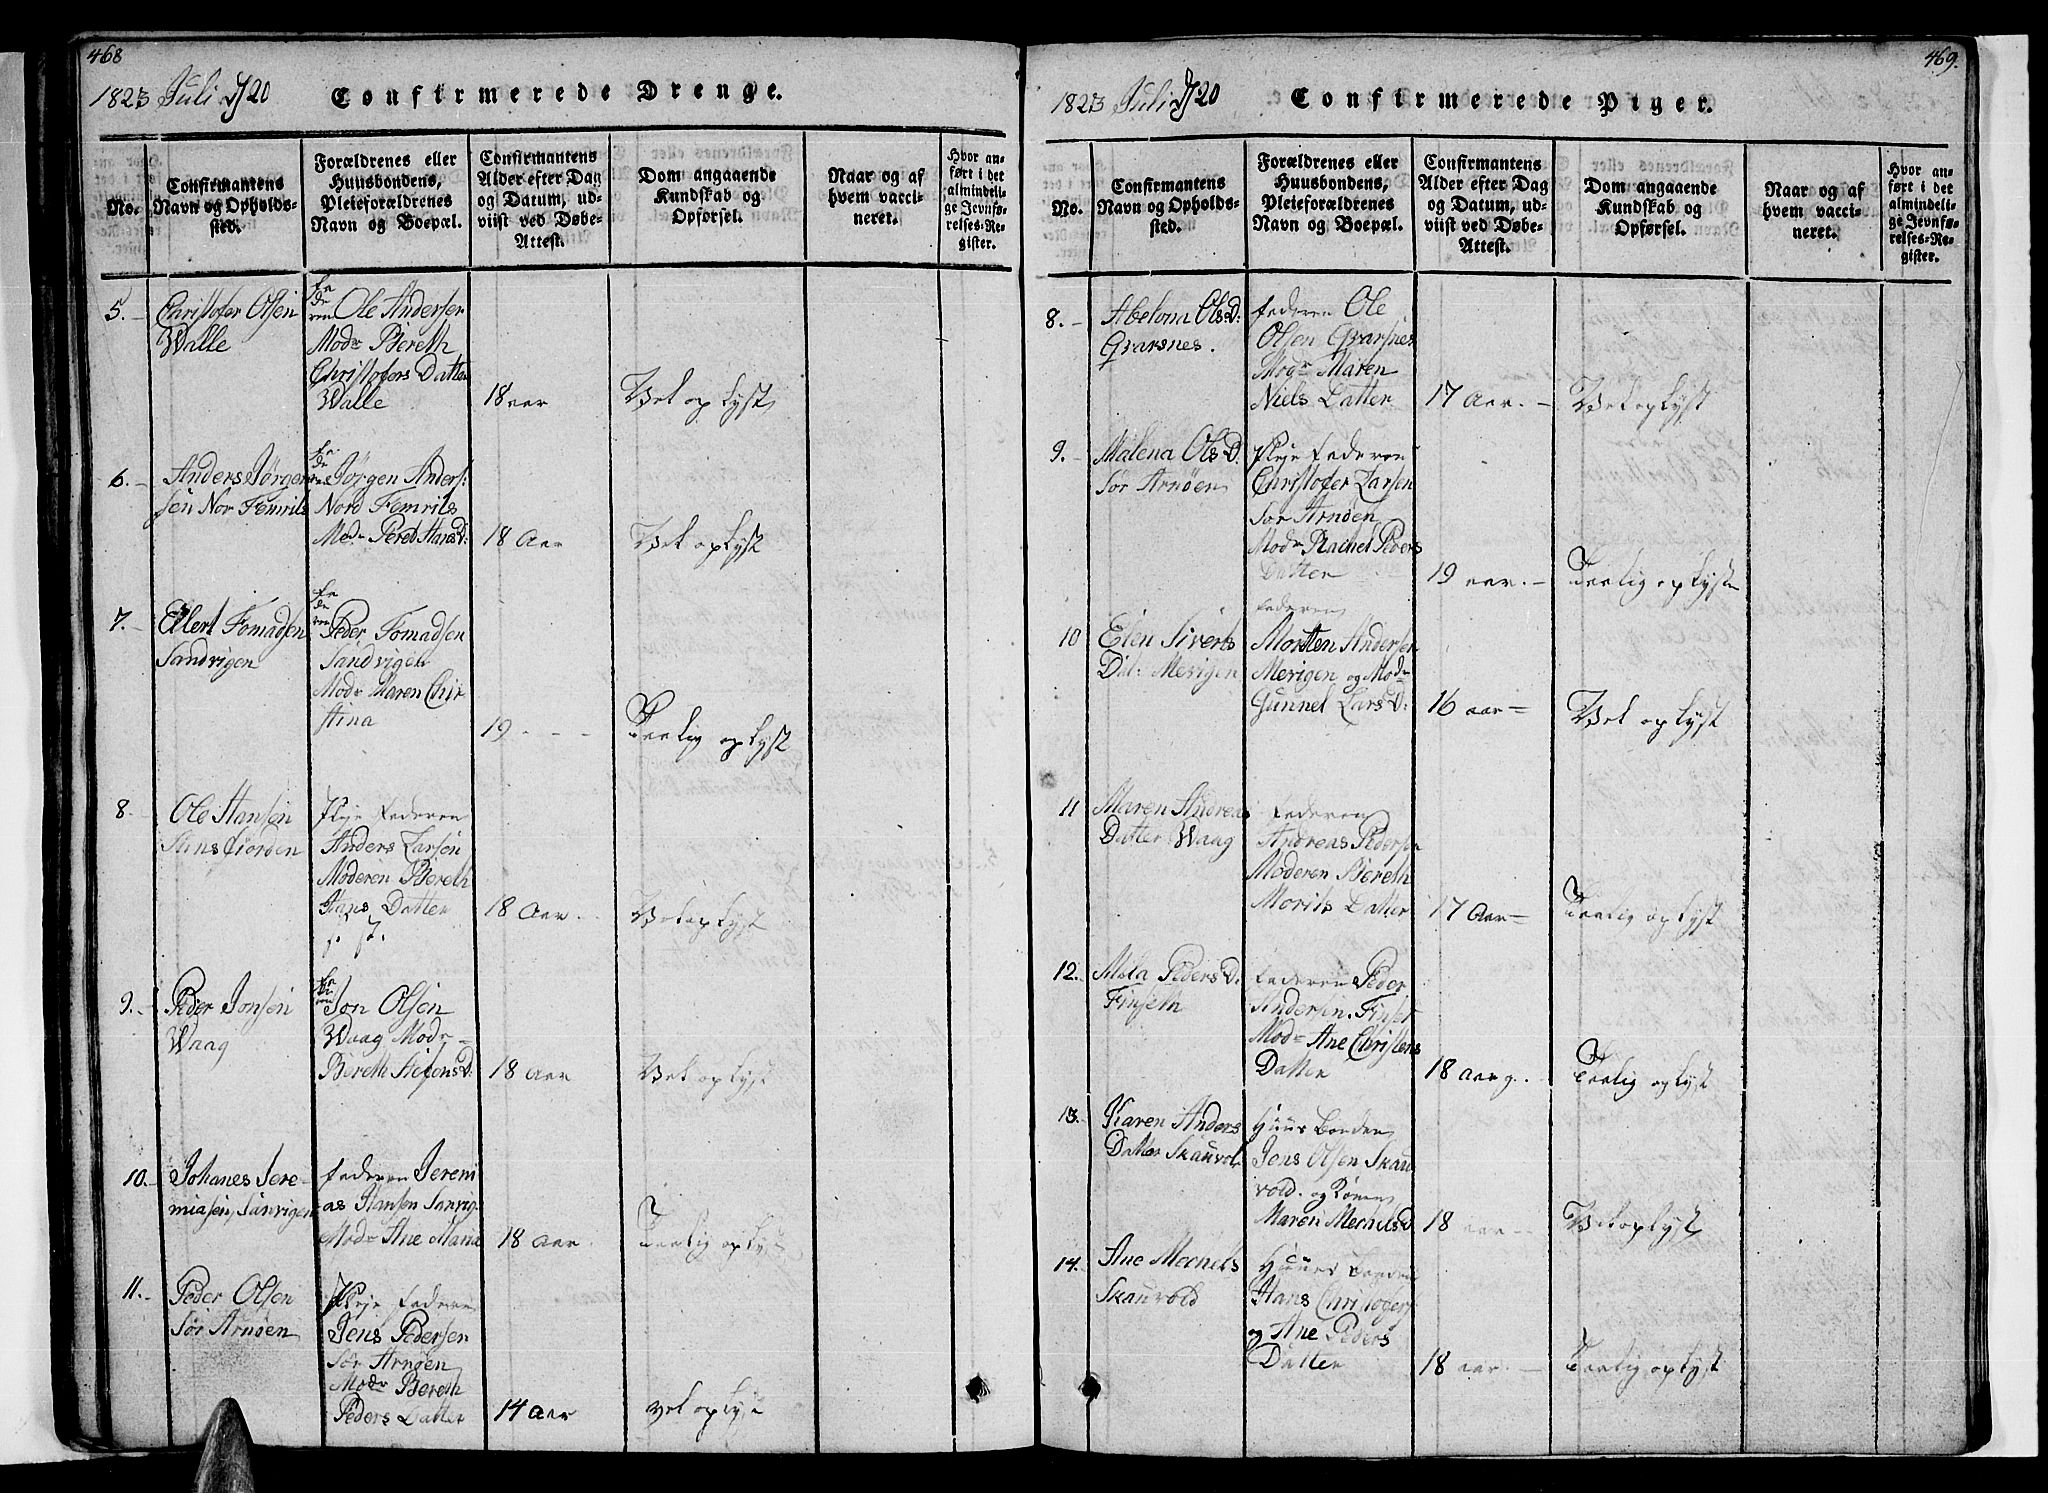 468
1823 Juli d 20 Confirmerede Drenge.
No.
Confirmantens Navn og Opholds-sted.
Forældrenes eller Huusbondens, Pleieforældrenes Navn og Boepæl.
Confirmantens Alder efter Dag og Datum, ud-viist ved Døbe-Attest.
Dom angaaende Kundskab og Opførsel.
Naar og af hvem vacci-neret.
Hvor an-ført i det almindeli-ge Jevnfø-relses-Re-gister.
5. Christofer Olsen
Walle
Faderen Ole Andersen
Modr Bereth
Christofers Datter
Walle
18 aar
Vel oplyst
6. Anders Jørgen
sen Nor Femrils
Faderen Jørgen Anders:
Nord Femrils
Modr Beret Hans D:
18 Aar
Vel oplyst
7. Ellert Tomassen
Sandvigen
Faderen Peder Tomassen
Sandvigen
Modr Maren Chri
stina
19
Daarlig oplyst
8. Ole Hansen
Pleje Faderen
Anders Larsen
Moderen Bereth
Hans Datter
18 Aar
Vel oplyst
9. Peder Jonsen
Waag
Faderen Jon Olsen
Waag Modr
Bereth Stefens D:
18 Aar
Vel oplyst
10. Johanes Jere-
miasen, Sanvigen
Faderen Jeremi
as Hansen Sanvig
Modr Ane Maria
18 aar
Daarlig oplyst
11. Peder Olsen
Sør Arnøen
Pleje Faderen
Jens Pedersen
Sør Arnøen
Modr Bereth
Peders Datter
14 aar
Vel oplyst
469.
1823 Juli d 20 Confirmerede Piger.
No.
Confirmantens Navn og Opholds-sted.
Forældrenes eller Huusbondens, Pleieforældrenes Navn og Boepæl.
Confirmantens Alder efter Dag og Datum, ud-viist ved Døbe-Attest.
Dom angaaende Kundskab og Opførsel.
Naar og af hvem vacci-neret.
Hvor an-ført i det almindeli-ge Jevnfø-relses-Re-gister.
8. Abelona Ols D:
Qvarsnes.
Faderen Ole
Olsen Qvarsnes
Modr Maren
Niels Datter
17 Aar.
Vel oplyst
9. Malena Ols D.
Sør Arnøen
Pleje Faderen
Christofer Larsen
Sør Arnøen
Modr Rachel Peders
Datter
19 aar.
Daarlig oplyst
10 Elen Siverts
Dat: Merigen
Faderen
Mortten Andersen
Merigen og Modr
Gunnel Lars D:
16 aar
Vel oplyst
11 Maren Andreas
Datter Waag
Faderen
Andreas Pedersen
Moderen Bereth
Morits Datter
17 Aar
Daarlig oplyst
12. Peders D:
Finseth
Faderen Peder
Andersen Finset
Modr Ane Christens
Datter
18 aar
Daarlig oplyst
13. Karen Anders
Datter Skauvol
Huus Bonden
Jens Olsen Skau
vold. og Konen
Maren Mechels D
18 aar
Vel oplyst
14. Ane Mechels
Skauvold
Huus Bonden
Hans Christofers
og Ane Peders
Datter
18 aar.
Daarlig oplyst